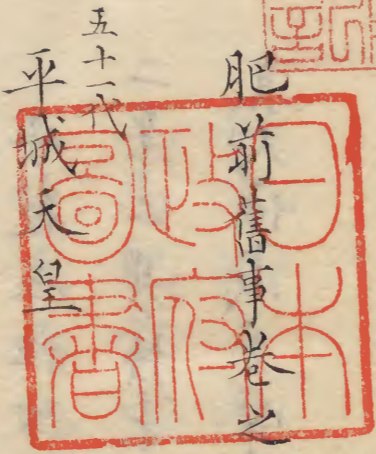 肥前舊事巻之
五十一代
平城天皇
日本
政府
圖書